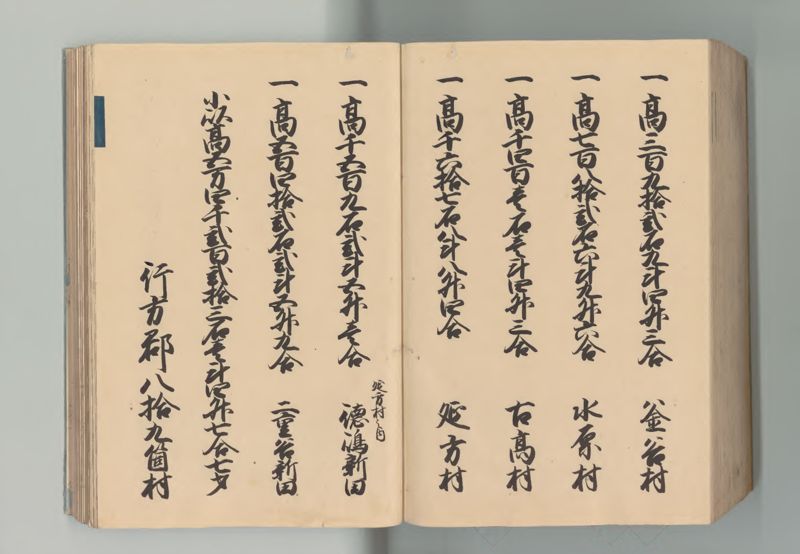 一 高三百九拾弐石九斗四升三合 釜谷村
一 高七百八拾弐石六斗九升六合 水原村
一 高千四百壱石壱斗四升三合 古高村
一 高千六拾七石八斗八升四合 延方村
一 高千五百九石弐斗五升壱合 延方村之内 徳嶋新田
一 高五百四拾弐石弐斗五升九合 二重谷新田
小以高五万四千弐百弐拾三石壱斗四升七合七夕
行方郡八拾九箇村